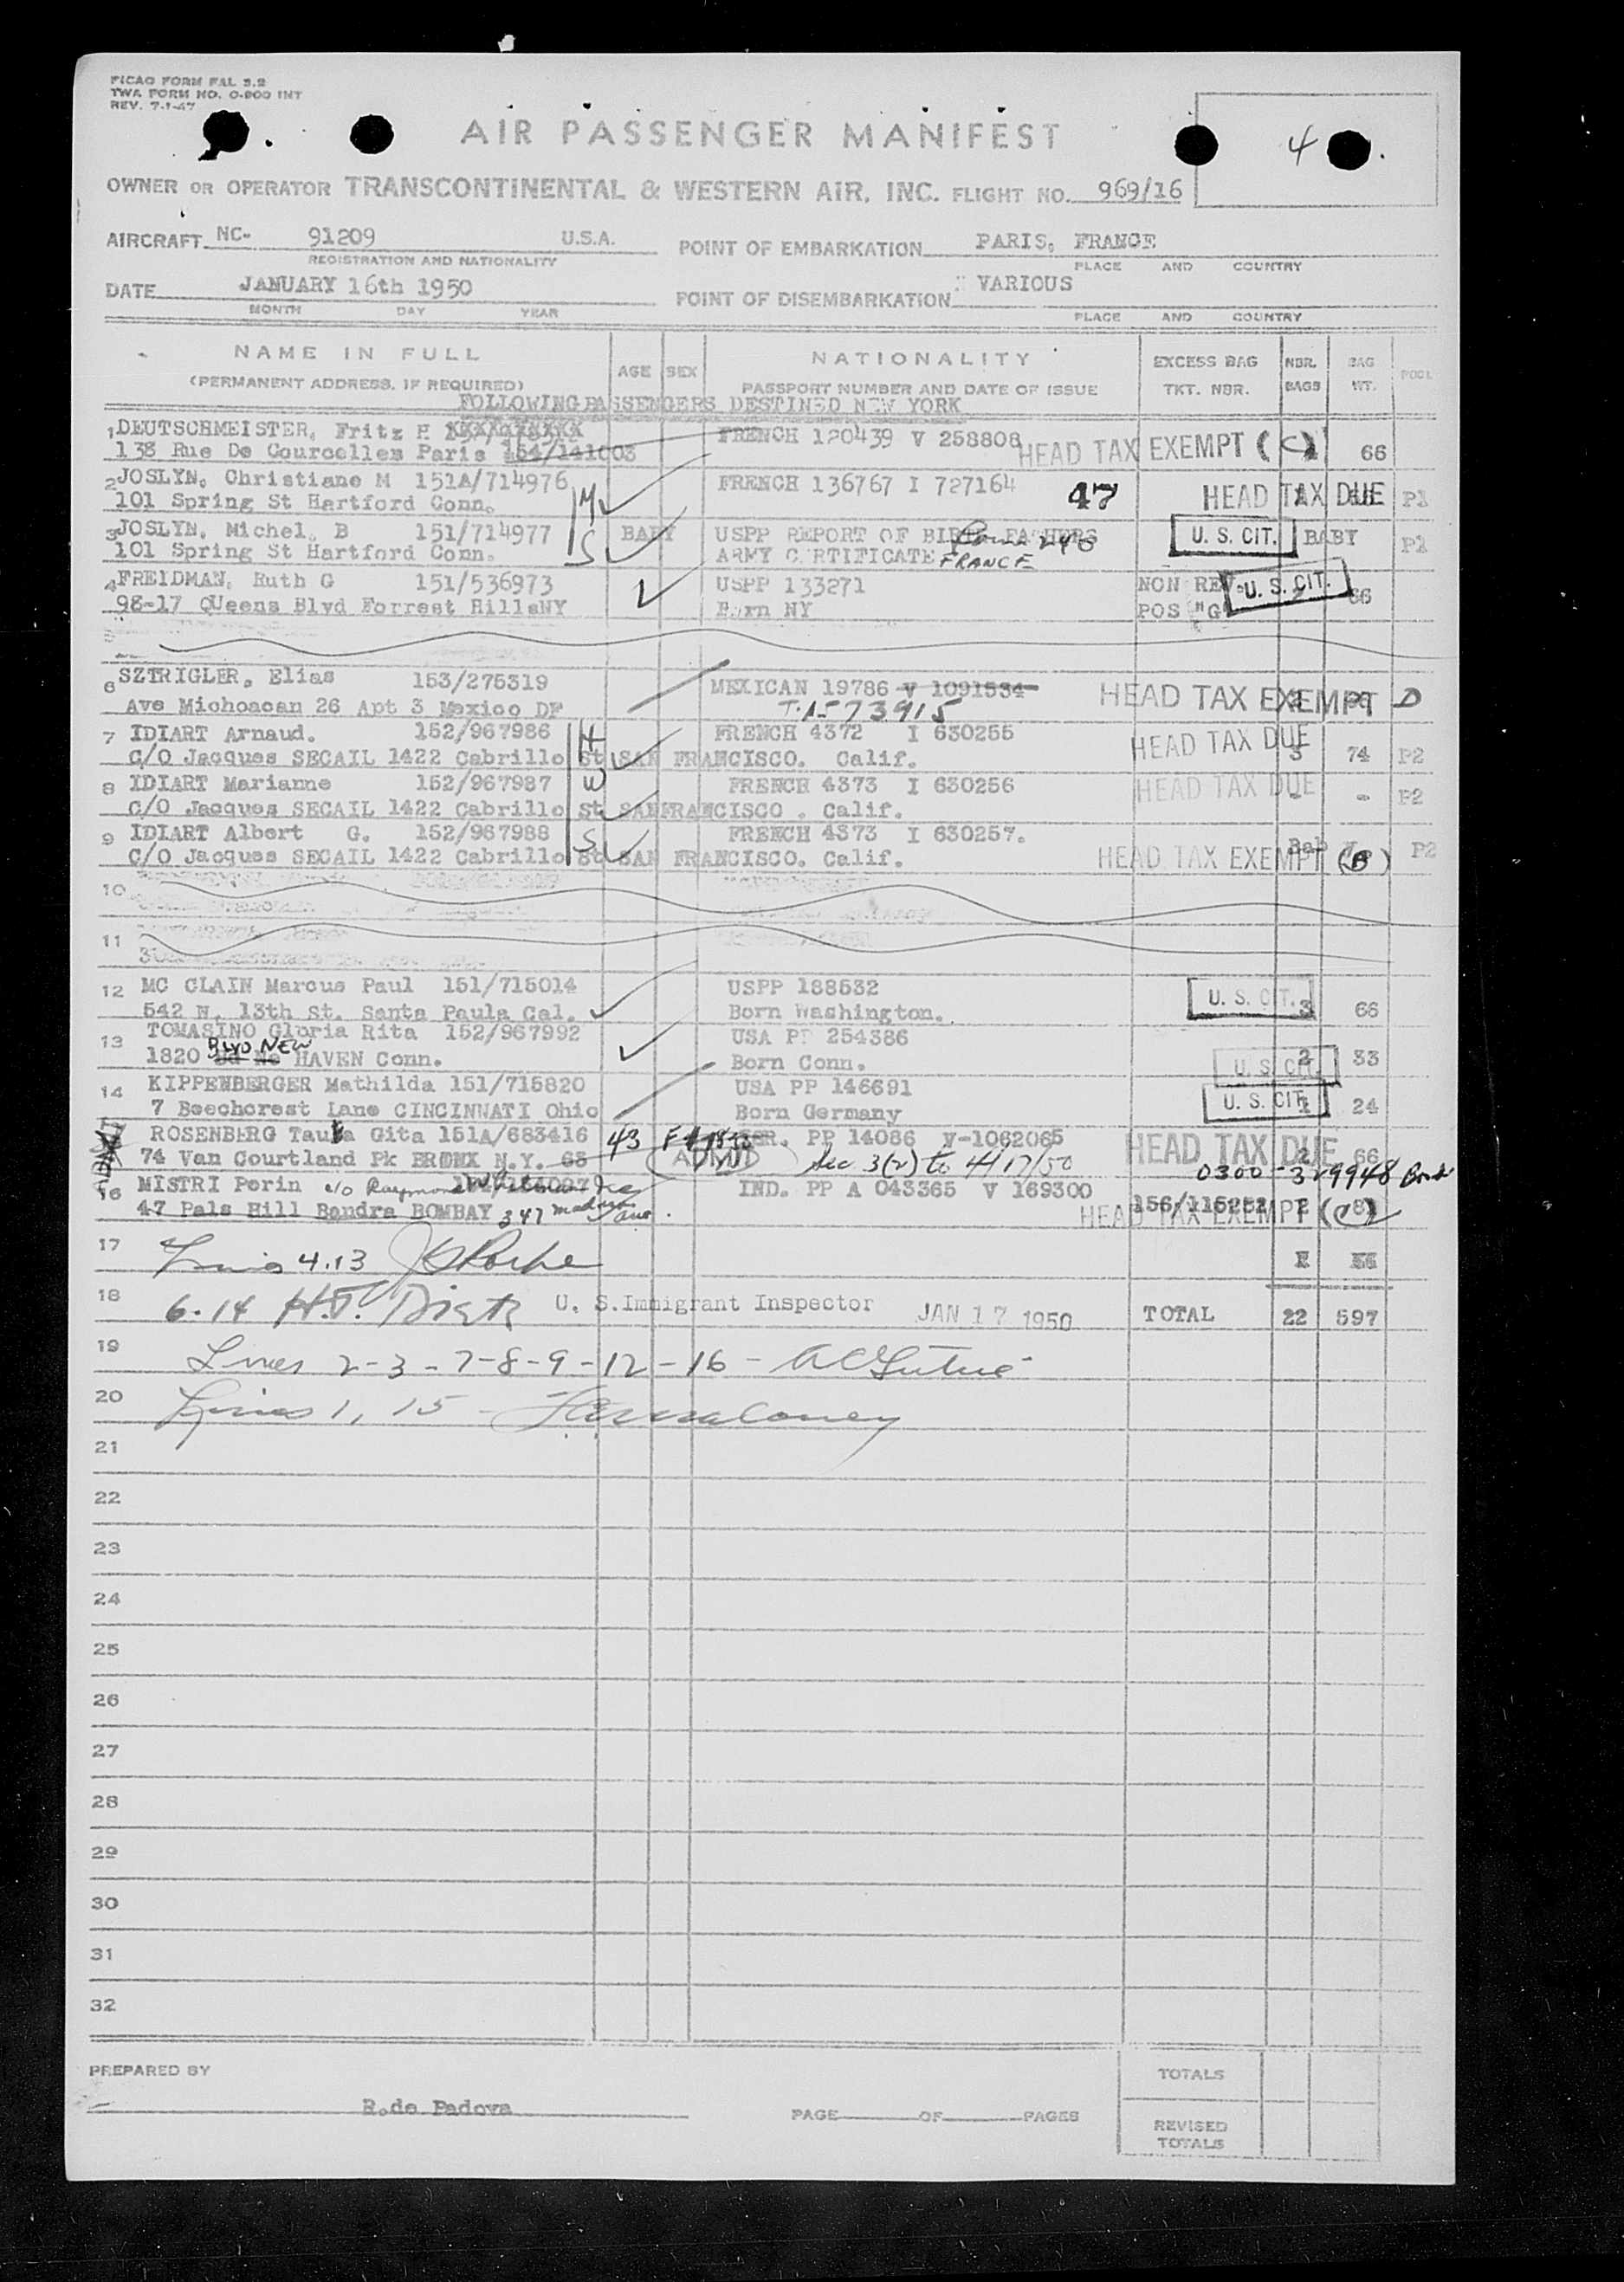 PICAO FORM FAL 3.2
TWA FORM NO. O-900 INT
REV. 7-1-47
AIR PASSENGER MANIFEST
4
OWNER OR OPERATOR TRANSCONTINENTAL & WESTERN AIR, INC. FLIGHT NO. 969/16
AIRCRAFT NC- 91209 U.S.A. POINT OF EMBARKATION PARIS, FRANCE
REGISTRATION AND NATIONALITY PLACE AND COUNTRY
DATE JANUARY 16th 1950 POINT OF DISEMBARKATION VARIOUS
MONTH DAY YEAR PLACE AND COUNTRY
NAME IN FULL AGE SEX NATIONALITY EXCESS BAG NBR. BAG POOL
(PERMANENT ADDRESS, IF REQUIRED) PASSPORT NUMBER AND DATE OF ISSUE TKT. NBR. BAGS WT.
FOLLOWING PASSENGERS DESTINED NEW YORK
1 DEUTSCHMEISTER, Fritz FRENCH 120439 V 258808 HEAD TAX EXEMPT (C)
138 Rue De Courcelles Paris 66
2 JOSLYN, Christiane M 151A/714976 M FRENCH 136767 I 727164 47 HEAD TAX DUE P1
101 Spring St Hartford Conn.
3 JOSLYN, Michel. B 151/714977 S BABY USPP REPORT OF BIRTH FATHERS U. S. CIT. BABY P1
101 Spring St Hartford Conn. ARMY CERTIFICATE FRANCE
4 FREIDMAN, Ruth G 151/536973 USPP 133271 NON REV. U. S. CIT.
98-17 QUeens Blvd Forrest HillsNY Born NY POS "G" 66
5
6 SZTRIGLER, Elias 153/275319 MEXICAN 19786 V 1091534 HEAD TAX EXEMPT D
Ave Michoacan 26 Apt 3 Mexico DF
7 IDIART Arnaud. 152/967986 H FRENCH 4372 I 630255 HEAD TAX DUE
C/O Jacques SECAIL 1422 Cabrillo St SAN FRANCISCO. Calif. 3 74 P2
8 IDIART Marianne 152/967987 W FRENCH 4373 I 630256 HEAD TAX DUE - - P2
C/O Jacques SECAIL 1422 Cabrillo St SANFRANCISCO . Calif.
9 IDIART Albert G. 152/967988 S FRENCH 4373 I 630257.
C/O Jacques SECAIL 1422 Cabrillo St SAN FRANCISCO. Calif. HEAD TAX EXEMPT (B) P2
10
11
12 MC CLAIN Marcus Paul 151/715014 USPP 188532 U. S. CIT.
542 N. 13th St. Santa Paula Cal. Born Washington. 3 66
13 TOMASINO Gloria Rita 152/967992 USA PP 254386
1820 BLVD NEW HAVEN Conn. Born Conn. U. S. CIT. 2 33
14 KIPPENBERGER Mathilda 151/715820 USA PP 146691
7 Beechcrest Lane CINCINNATI Ohio Born Germany U. S. CIT. 1 24
ROSENBERG Gita 151A/683416 43 F PP 14086 V-1062065 HEAD TAX DUE
74 Van Courtland Pk BRONX N.Y. ADMTD Sec 3(2) to 4/17/50 2 66
0300-329948 Bond
16 MISTRI Perin c/o Raymond IND. PP A 043365 V 169300 156/115252 2
47 Pals Hill Bandra BOMBAY 347 Madison Ave. HEAD TAX EXEMPT (C)
17 Lines 4.13
18 6-14 H.J. Dietz U. S. Immigrant Inspector JAN 17 1950 TOTAL 22 597
19 Lines 2-3-7-8-9-12-16-
20 Lines 1, 15 -
21
22
23
24
25
26
27
28
29
30
31
32
PREPARED BY TOTALS
R.de Padova PAGE OF PAGES REVISED TOTALS